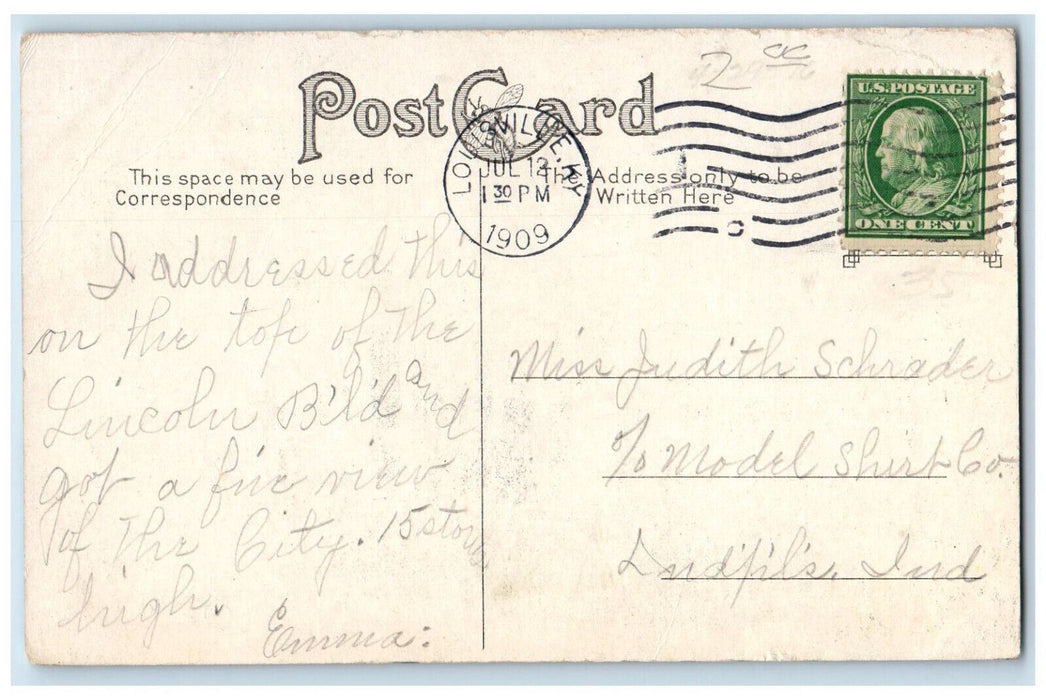 2
Post Card
U.S. POSTAGE
ONE CENT
LOUISVILLE, KY
JUL 12
1 30 PM
1909
This space may be used for
Correspondence
The Address only to be
Written Here
35
I addressed this
on the top of the
Lincoln B'ld and
got a fine view
of the City. 15 stories
high.
Emma.
Miss Judith Schrader
c/o Model Shirt Co.
Indpl's. Ind